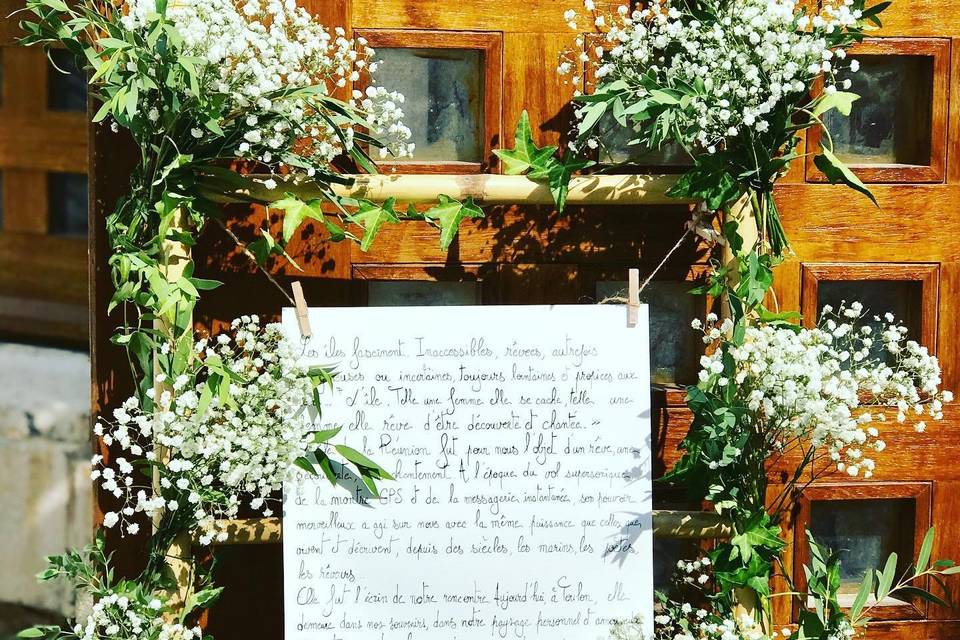 Les îles fascinent. Inaccessibles, rêvées, autrefois
ou incertaines, toujours lointaines et propices aux
l'île. Telle une femme elle se cache, telle une
femme elle rêve d'être découverte et chantée.. »
la Réunion fut pour nous l'objet d'un rêve, une
A l'époque du vol supersonique,
de la montre GPS et de la messagerie instantanée, son pouvoir
merveilleux a agi sur nous avec la même puissance que celles que
vivent et décrivent, depuis des siècles, les marins, les poètes,
les rêveurs...
Elle fut l'écrin de notre rencontre. Aujourd'hui, à Toulon, elle
demeure dans nos souvenirs, dans notre paysage personnel d'amoureux